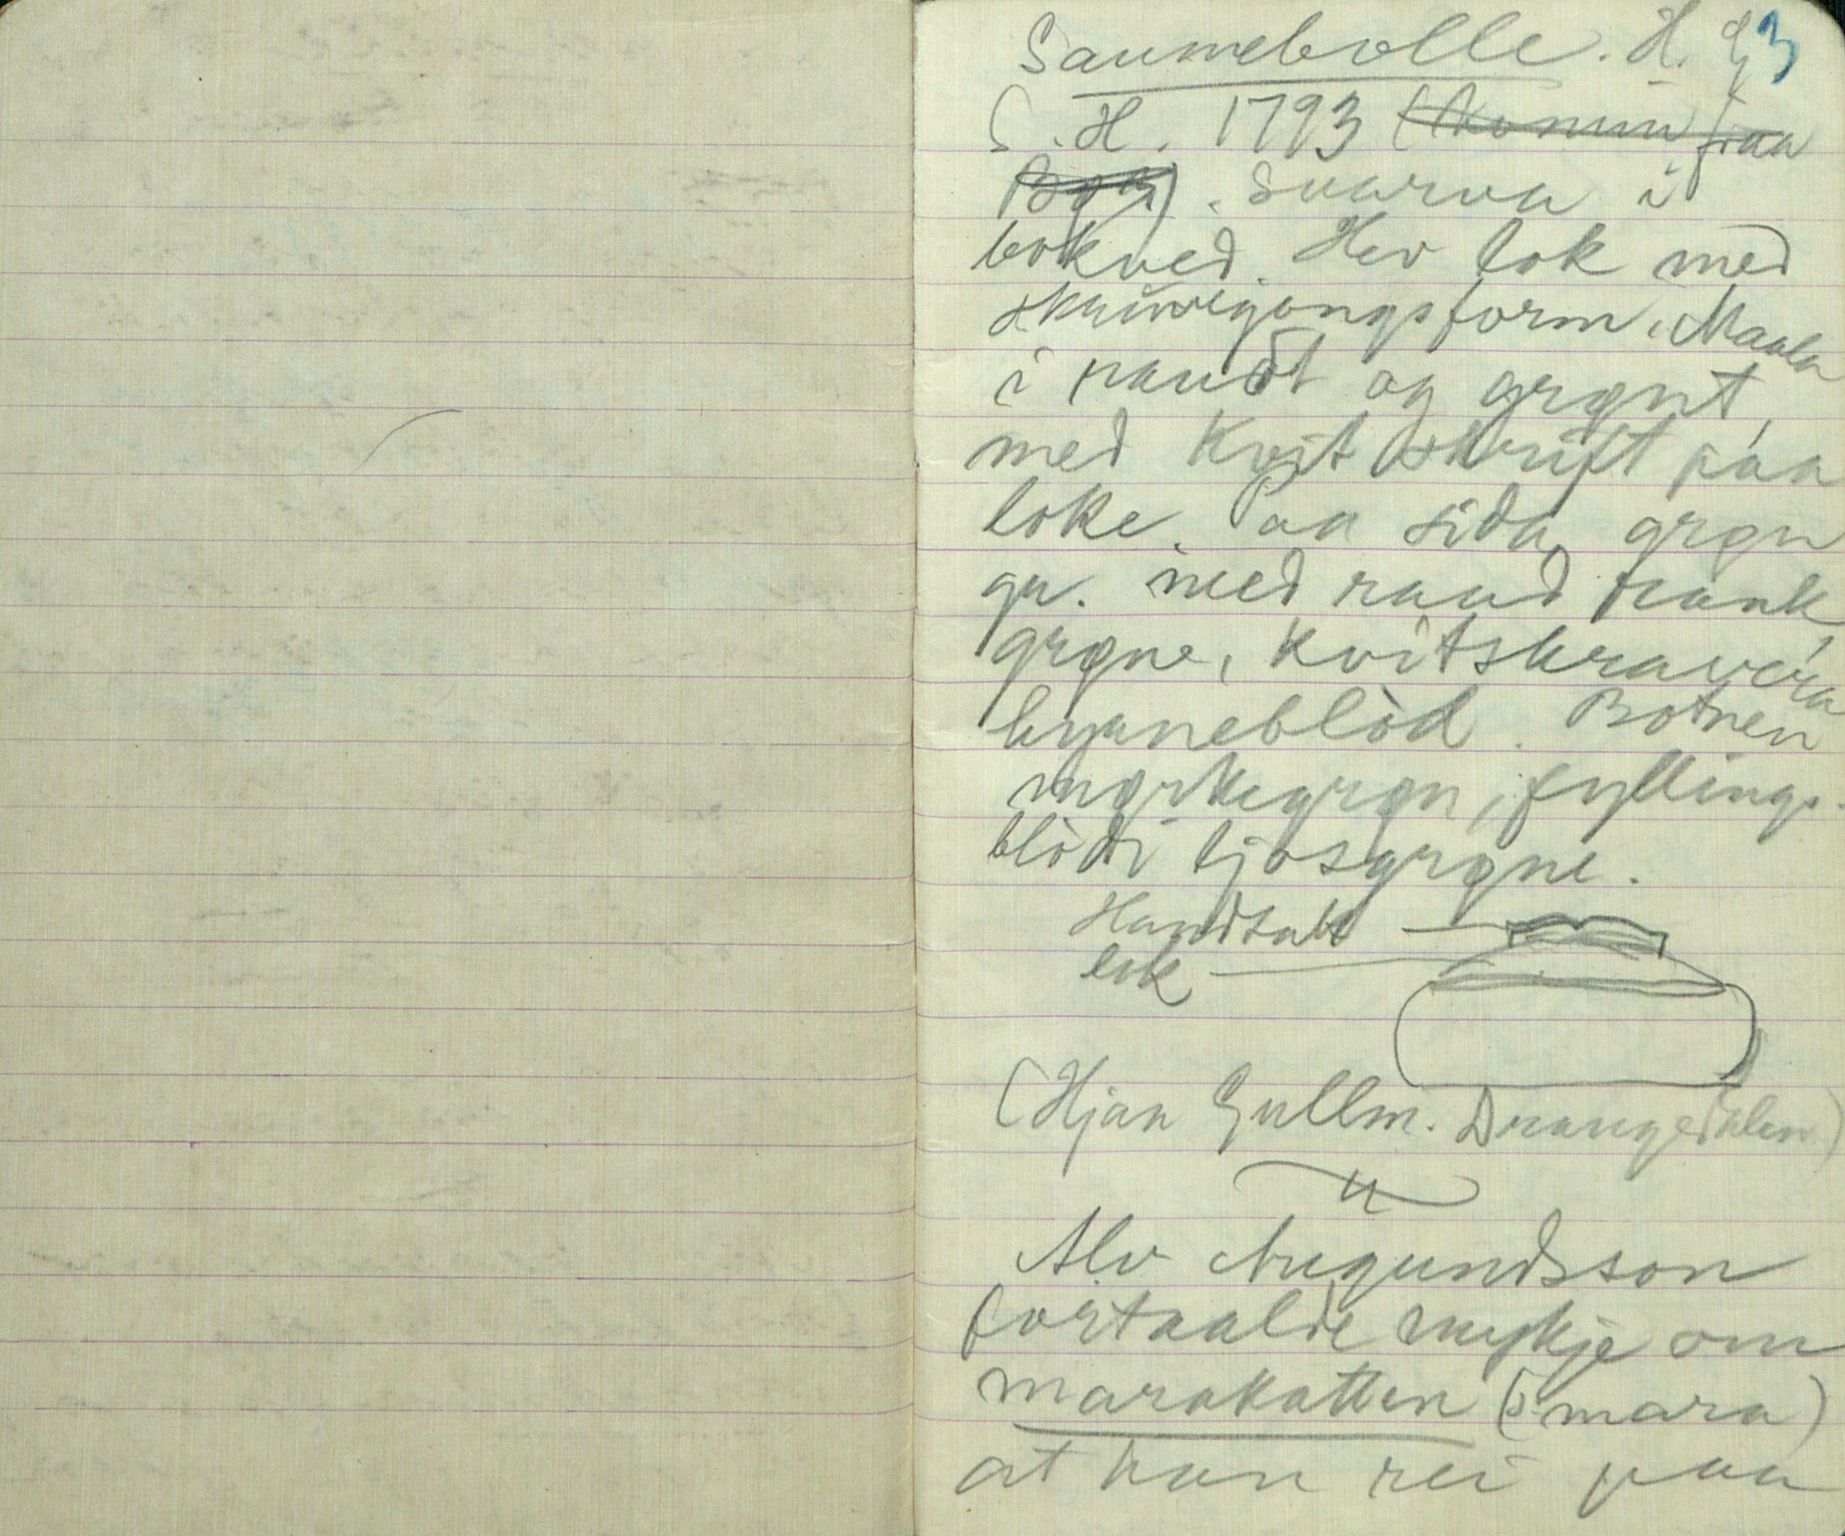 Saumebolle. H. G 3
S. H. 1793 (Komin fraa
Bgn). Svarva i
bokved. Hev lok med
skruvegongsform. Maala
i raudt og grønt,
med kvit skrift paa
loke. Paa sida grøn
gr. med raud rank,
grøne, kvitskravera
hyrneblòd. Botnen
mørkegrøn, fyllings-
blòdi ljosgrøne.
Handtak
lok
(Hjaa Gullm. Drangedalen)
Alv Augundsson
fortaalde mykje om
marakatten (ɔ: mara)
at han rei paa